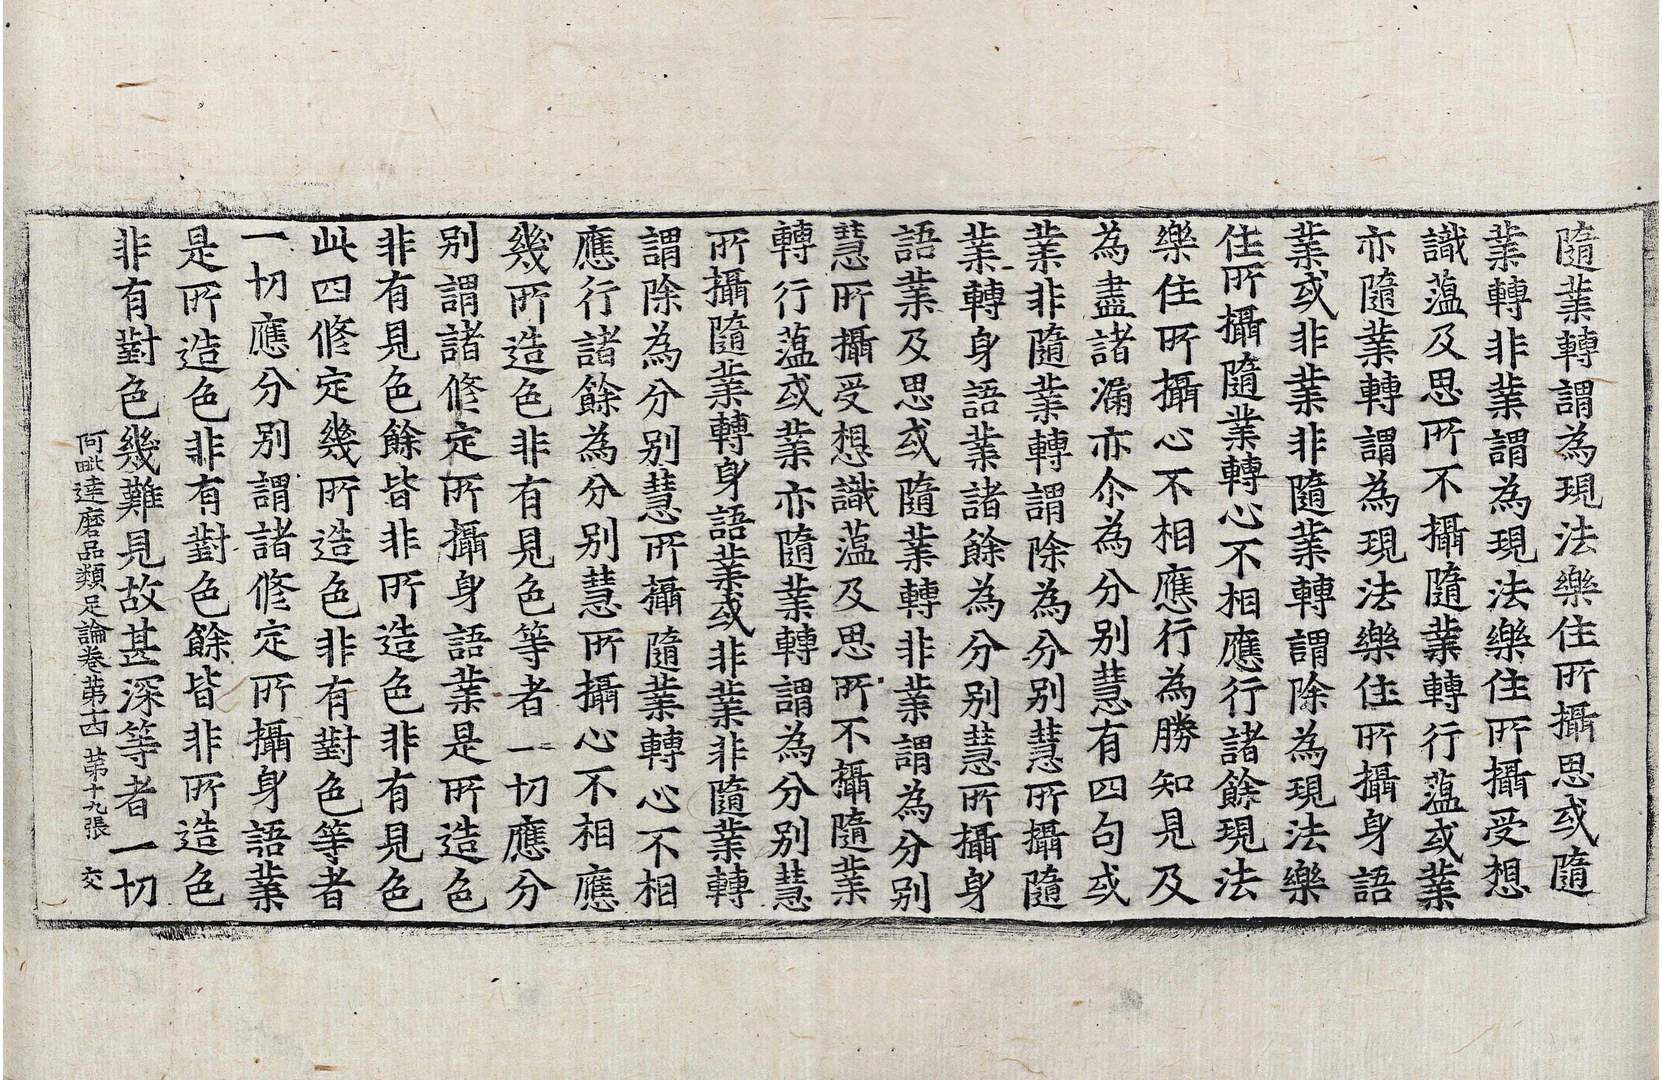 隨業轉謂為現法樂住所攝思或隨
業轉非業謂為現法樂住所攝受想
識薀及思所不攝隨業轉行薀或業
亦隨業轉謂為現法樂住所攝身語
業或非業非隨業轉謂除為現法樂
住所攝隨業轉心不相應行諸餘現法
樂住所攝心不相應行為勝知見及
為盡諸漏亦尒為分別慧有四句或
業非隨業轉謂除為分別慧所攝隨
業轉身語業諸餘為分別慧所攝身
語業及思或隨業轉非業謂為分別
慧所攝受想識薀及思所不攝隨業
轉行薀或業亦隨業轉謂為分別慧
所攝隨業轉身語業或非業非隨業轉
謂除為分別慧所攝隨業轉心不相
應行諸餘為分別慧所攝心不相應
幾所造色非有見色等者一切應分
別謂諸修定所攝身語業是所造色
非有見色餘皆非所造色非有見色
此四修定幾所造色非有對色等者
一切應分別謂諸修定所攝身語業
是所造色非有對色餘皆非所造色
非有對色幾難見故甚深等者一切
阿毗達磨品類足論卷第十四 第十九張 交